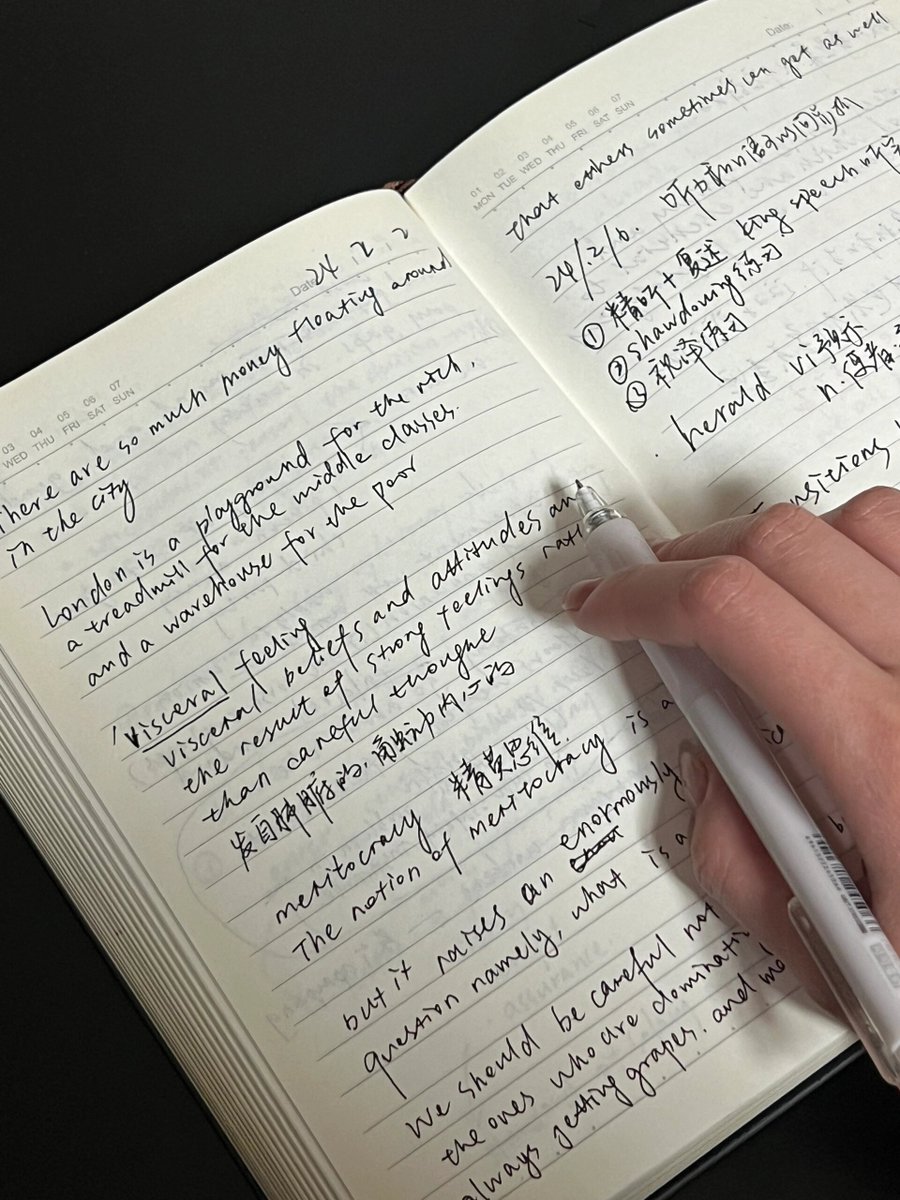 Date: 24.2.2
03 04 05 06 07
WED THU FRI SAT SUN
There are so much money floating around
in the city
London is a playground for the rich,
a treadmill for the middle classes.
and a warehouse for the poor
visceral feeling
visceral beliefs and attitudes
the result of strong feelings
than careful
发自肺脏的,内心的
meritocracy 精英思维
The notion of meritocracy is a
but it raises an enormously
question namely, what is a
We should be careful not
the ones who are
always getting grapes. and
Date:
01 02 03 04 05 06 07
MON TUE WED THU FRI SAT SUN
that others sometimes can get as well
24/.2/6. 听力和口语
① 精听+复述 king speech 听
② shawdowing练习
③ 视译练习
herald vi预示
n.